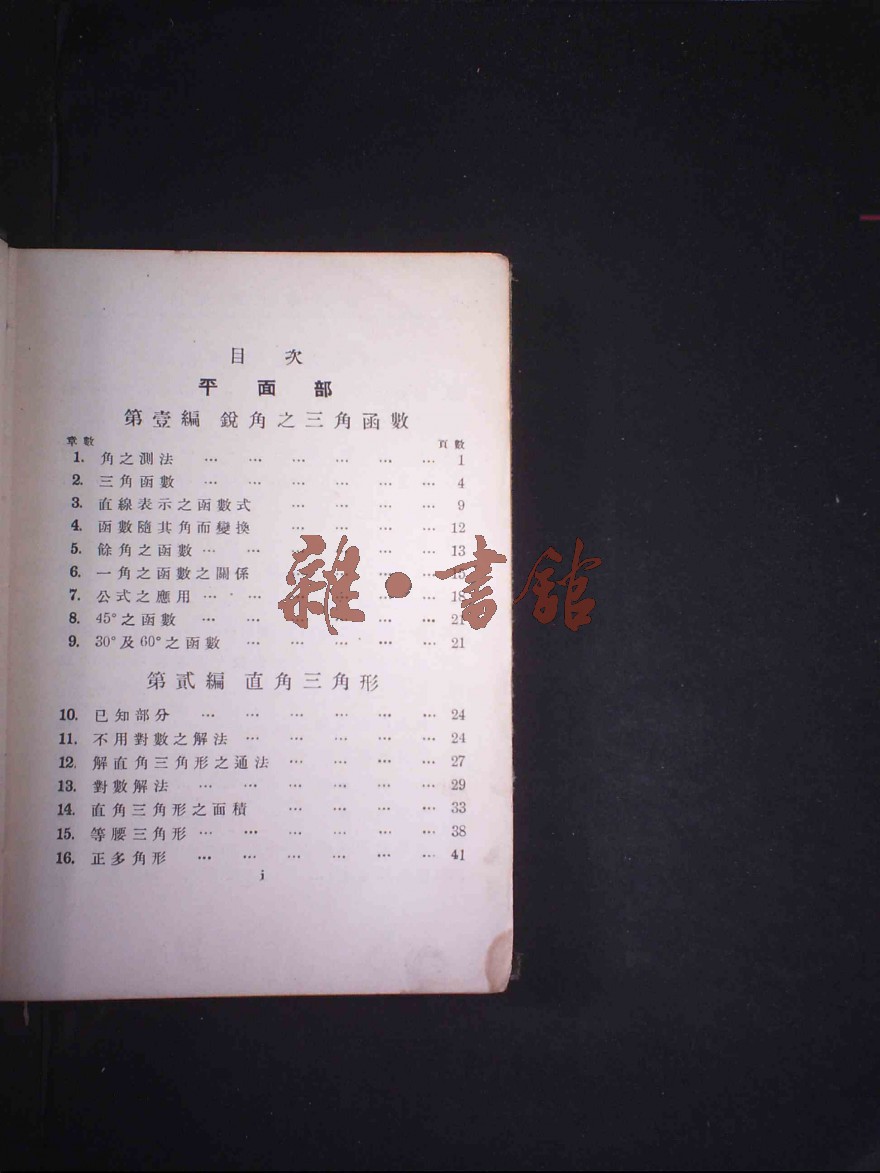 目次
平面部
第壹編 銳角之三角函數
章數 頁數
1. 角之測法 … … … … … … 1
2. 三角函數 … … … … … … 4
3. 直線表示之函數式 … … … … 9
4. 函數隨其角而變換 … … … … 12
5. 餘角之函數 … … … … … … 13
6. 一角之函數之關係 … … … … 15
7. 公式之應用 … … … … … … 18
8. 45°之函數 … … … … … … 21
9. 30°及60°之函數 … … … … … 21
雜·書館
第貳編 直角三角形
10. 已知部分 … … … … … … 24
11. 不用對數之解法 … … … … … 24
12. 解直角三角形之通法 … … … … 27
13. 對數解法 … … … … … … 29
14. 直角三角形之面積 … … … … 33
15. 等腰三角形 … … … … … … 38
16. 正多角形 … … … … … … 41
j